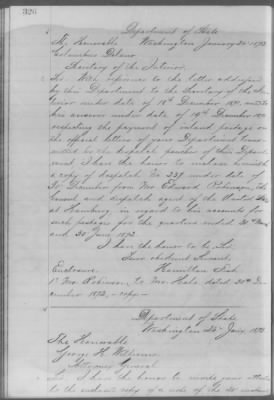 326
Department of State
The Honorable Washington January 24, 1873
Columbus Delano
Secretary of the Interior.
Sir: With reference to the letter addressed
by this Department to the Secretary of the In-
terior under date of 18th December and to
his answer under date of 19th December
respecting the payment of inland postage on
the official letters of your Department
by the dispatch pouches of this Depart-
ment I have the honor to enclose herewith
a copy of dispatch No. under date of
30 December from Mr. Edward Robinson, the
Consul and dispatch agent of the United States
at Hamburg in regard to his accounts for
such postage for the quarters ended 31st
and 30 June 1872.
I have the honor to be Sir
Your obedient Servant
Enclosure. Hamilton Fish
Mr. Robinson to Mr. Hale dated 30th De-
cember 1872, - copy -
Department of State
Washington 24 Jany 1873
The Honorable
George H. Williams
Attorney General
Sir: I have the honor to your atten-
tion to the copy of a note of the